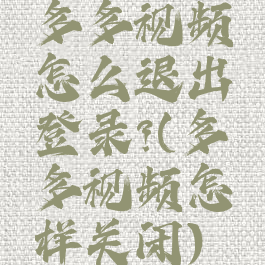 多多视频
怎么退出
登录?(多
多视频怎
样关闭)